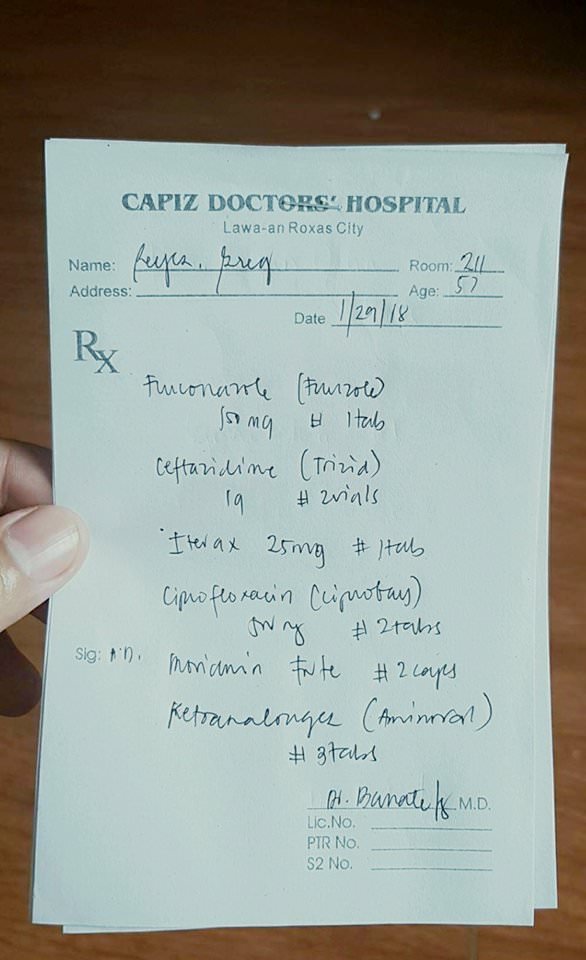 CAPIZ DOCTORS' HOSPITAL
Lawa-an Roxas City
Name: Reyes, Greg Room: 211
Address: Age: 57
Date 1/29/18
Rx
Fluconazole (Funzole)
150 mg # 1tab
Ceftazidime (Trizid)
1g # 2vials
Iterax 25mg # 1tab
Ciprofloxacin (Ciprobay)
500mg # 2tabs
Sig: Moriamin Forte # 2caps
Ketoanalogues (Aminoral)
# 3tabs
Dr. Banate M.D.
Lic.No.
PTR No.
S2 No.